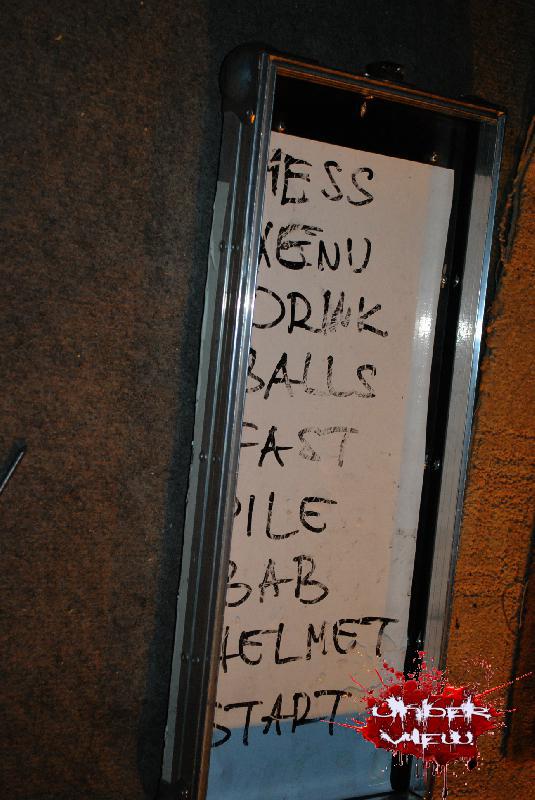 MESS
MENU
DRINK
BALLS
FAST
PILE
BAB
HELMET
START
UNDER
VIEW